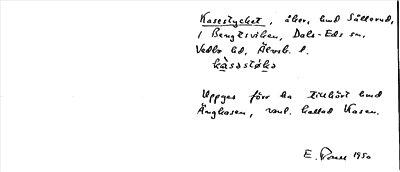 Kasestycket, åker, hmd Sällerud,
i Bengtsviken, Dals-Eds sn,
Vedbo hd, Älvsb. l.
kàsestøkə
Uppges förr ha tillhört hmd
Ängkasen, vanl. kallad Kasen.
E. 1950